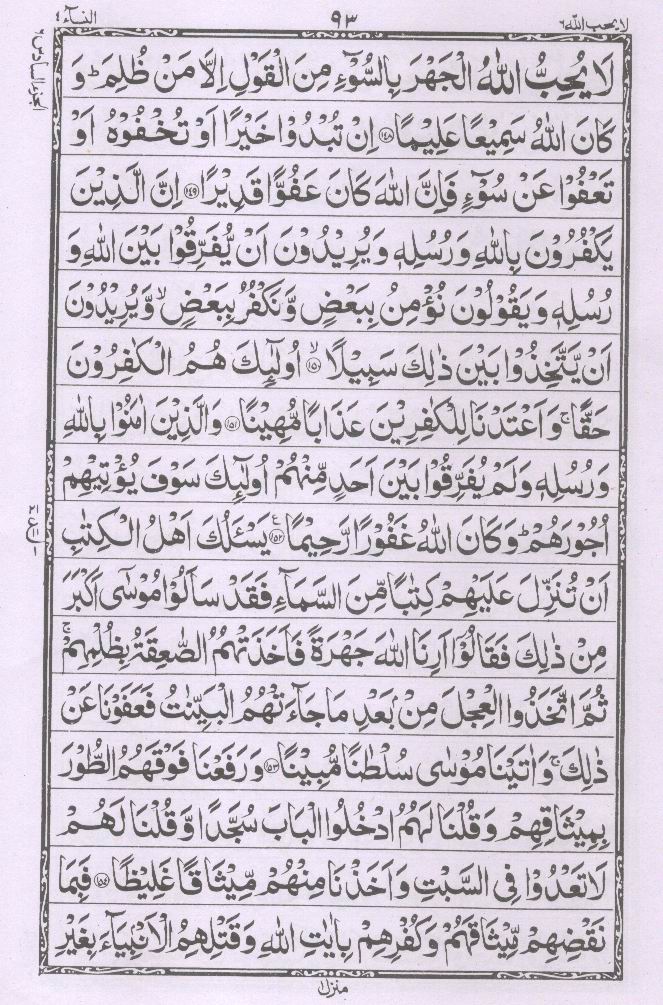 لا يحب الله ٦
٩٣
النسآء ٤
الجزء السادس ٦
لَا يُحِبُّ اللهُ الْجَهْرَ بِالسُّوْٓءِ مِنَ الْقَوْلِ اِلَّا مَنْ ظُلِمَ ؕ وَ
كَانَ اللهُ سَمِيْعًا عَلِيْمًا ﴿۱۴۸﴾ اِنْ تُبْدُوْا خَيْرًا اَوْ تُخْفُوْهُ اَوْ
تَعْفُوْا عَنْ سُوْٓءٍ فَاِنَّ اللهَ كَانَ عَفُوًّا قَدِيْرًا ﴿۱۴۹﴾ اِنَّ الَّذِيْنَ
يَكْفُرُوْنَ بِاللهِ وَرُسُلِهٖ وَيُرِيْدُوْنَ اَنْ يُّفَرِّقُوْا بَيْنَ اللهِ وَ
رُسُلِهٖ وَيَقُوْلُوْنَ نُؤْمِنُ بِبَعْضٍ وَّنَكْفُرُ بِبَعْضٍ ۙ وَّيُرِيْدُوْنَ
اَنْ يَّتَّخِذُوْا بَيْنَ ذٰلِكَ سَبِيْلًا ﴿۱۵۰﴾ ۙ اُولٰٓئِكَ هُمُ الْكٰفِرُوْنَ
حَقًّا ۚ وَاَعْتَدْنَا لِلْكٰفِرِيْنَ عَذَابًا مُّهِيْنًا ﴿۱۵۱﴾ وَالَّذِيْنَ اٰمَنُوْا بِاللهِ
وَرُسُلِهٖ وَلَمْ يُفَرِّقُوْا بَيْنَ اَحَدٍ مِّنْهُمْ اُولٰٓئِكَ سَوْفَ يُؤْتِيْهِمْ
اُجُوْرَهُمْ ؕ وَكَانَ اللهُ غَفُوْرًا رَّحِيْمًا ﴿۱۵۲﴾ ع يَسْـَٔلُكَ اَهْلُ الْكِتٰبِ
اَنْ تُنَزِّلَ عَلَيْهِمْ كِتٰبًا مِّنَ السَّمَآءِ فَقَدْ سَاَلُوْا مُوْسٰٓى اَكْبَرَ
مِنْ ذٰلِكَ فَقَالُوْٓا اَرِنَا اللهَ جَهْرَةً فَاَخَذَتْهُمُ الصّٰعِقَةُ بِظُلْمِهِمْ ۚ
ثُمَّ اتَّخَذُوا الْعِجْلَ مِنْۢ بَعْدِ مَا جَآءَتْهُمُ الْبَيِّنٰتُ فَعَفَوْنَا عَنْ
ذٰلِكَ ۚ وَاٰتَيْنَا مُوْسٰى سُلْطٰنًا مُّبِيْنًا ﴿۱۵۳﴾ وَرَفَعْنَا فَوْقَهُمُ الطُّوْرَ
بِمِيْثَاقِهِمْ وَقُلْنَا لَهُمُ ادْخُلُوا الْبَابَ سُجَّدًا وَّقُلْنَا لَهُمْ
لَا تَعْدُوْا فِى السَّبْتِ وَاَخَذْنَا مِنْهُمْ مِّيْثَاقًا غَلِيْظًا ﴿۱۵۴﴾ فَبِمَا
نَقْضِهِمْ مِّيْثَاقَهُمْ وَكُفْرِهِمْ بِاٰيٰتِ اللهِ وَقَتْلِهِمُ الْاَنْۢبِيَآءَ بِغَيْرِ
منزل ١